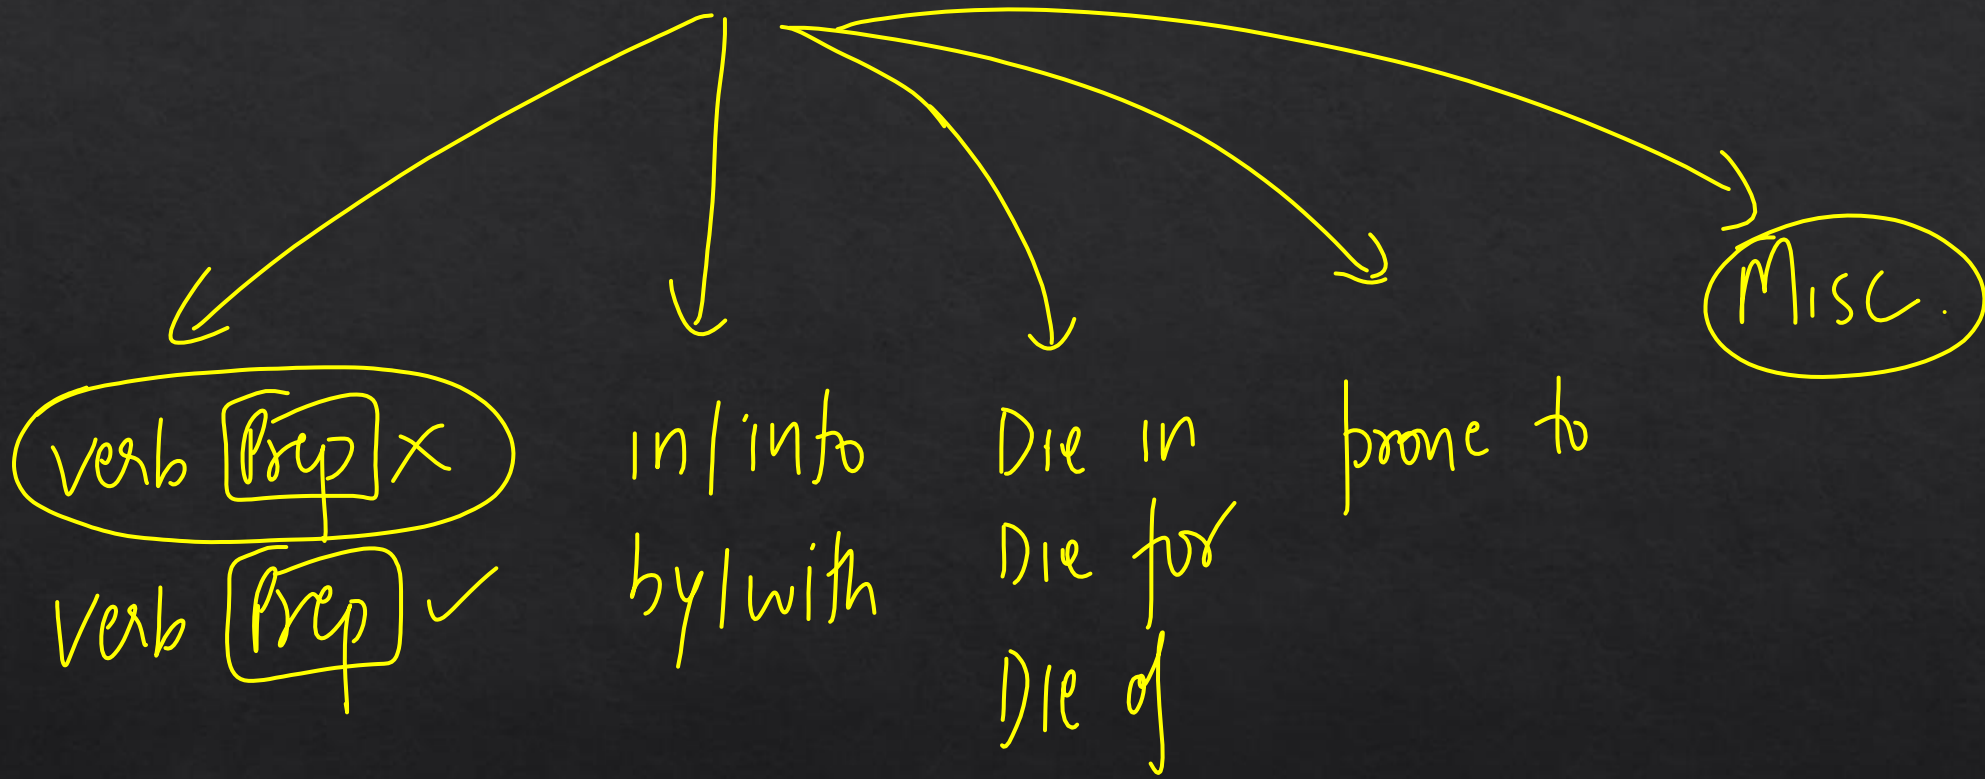 verb Prep ×
verb Prep ✓
in/into
by/with
Die in
Die for
Die of
prone to
Misc.